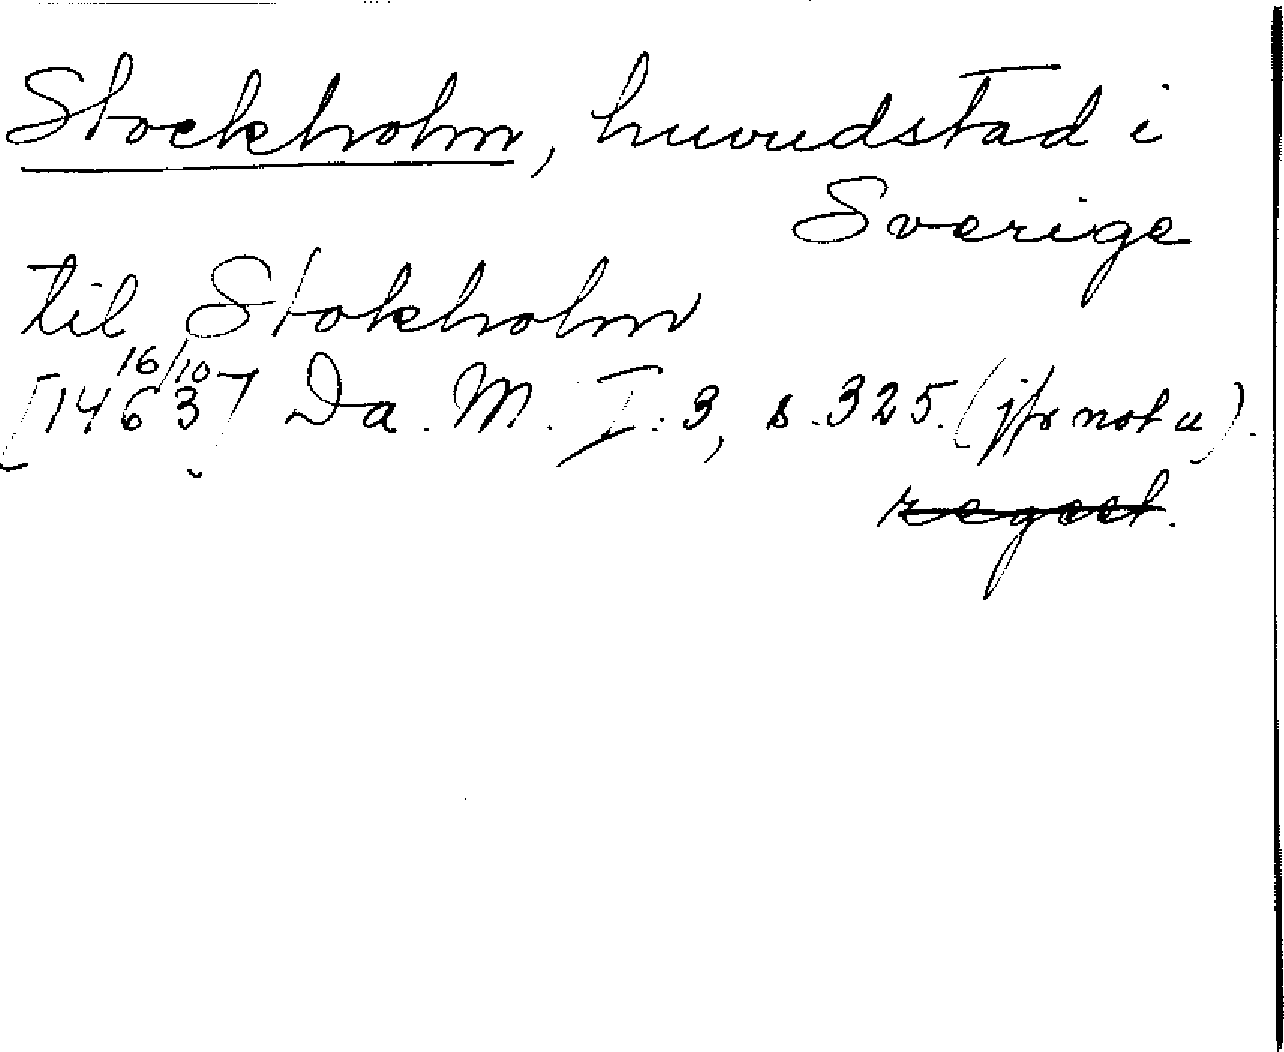 Stockholm, huvudstad i
Sverige
til Stokholm
[1463 16/10] Da. M. I. 3, s. 325. (jfr not u).